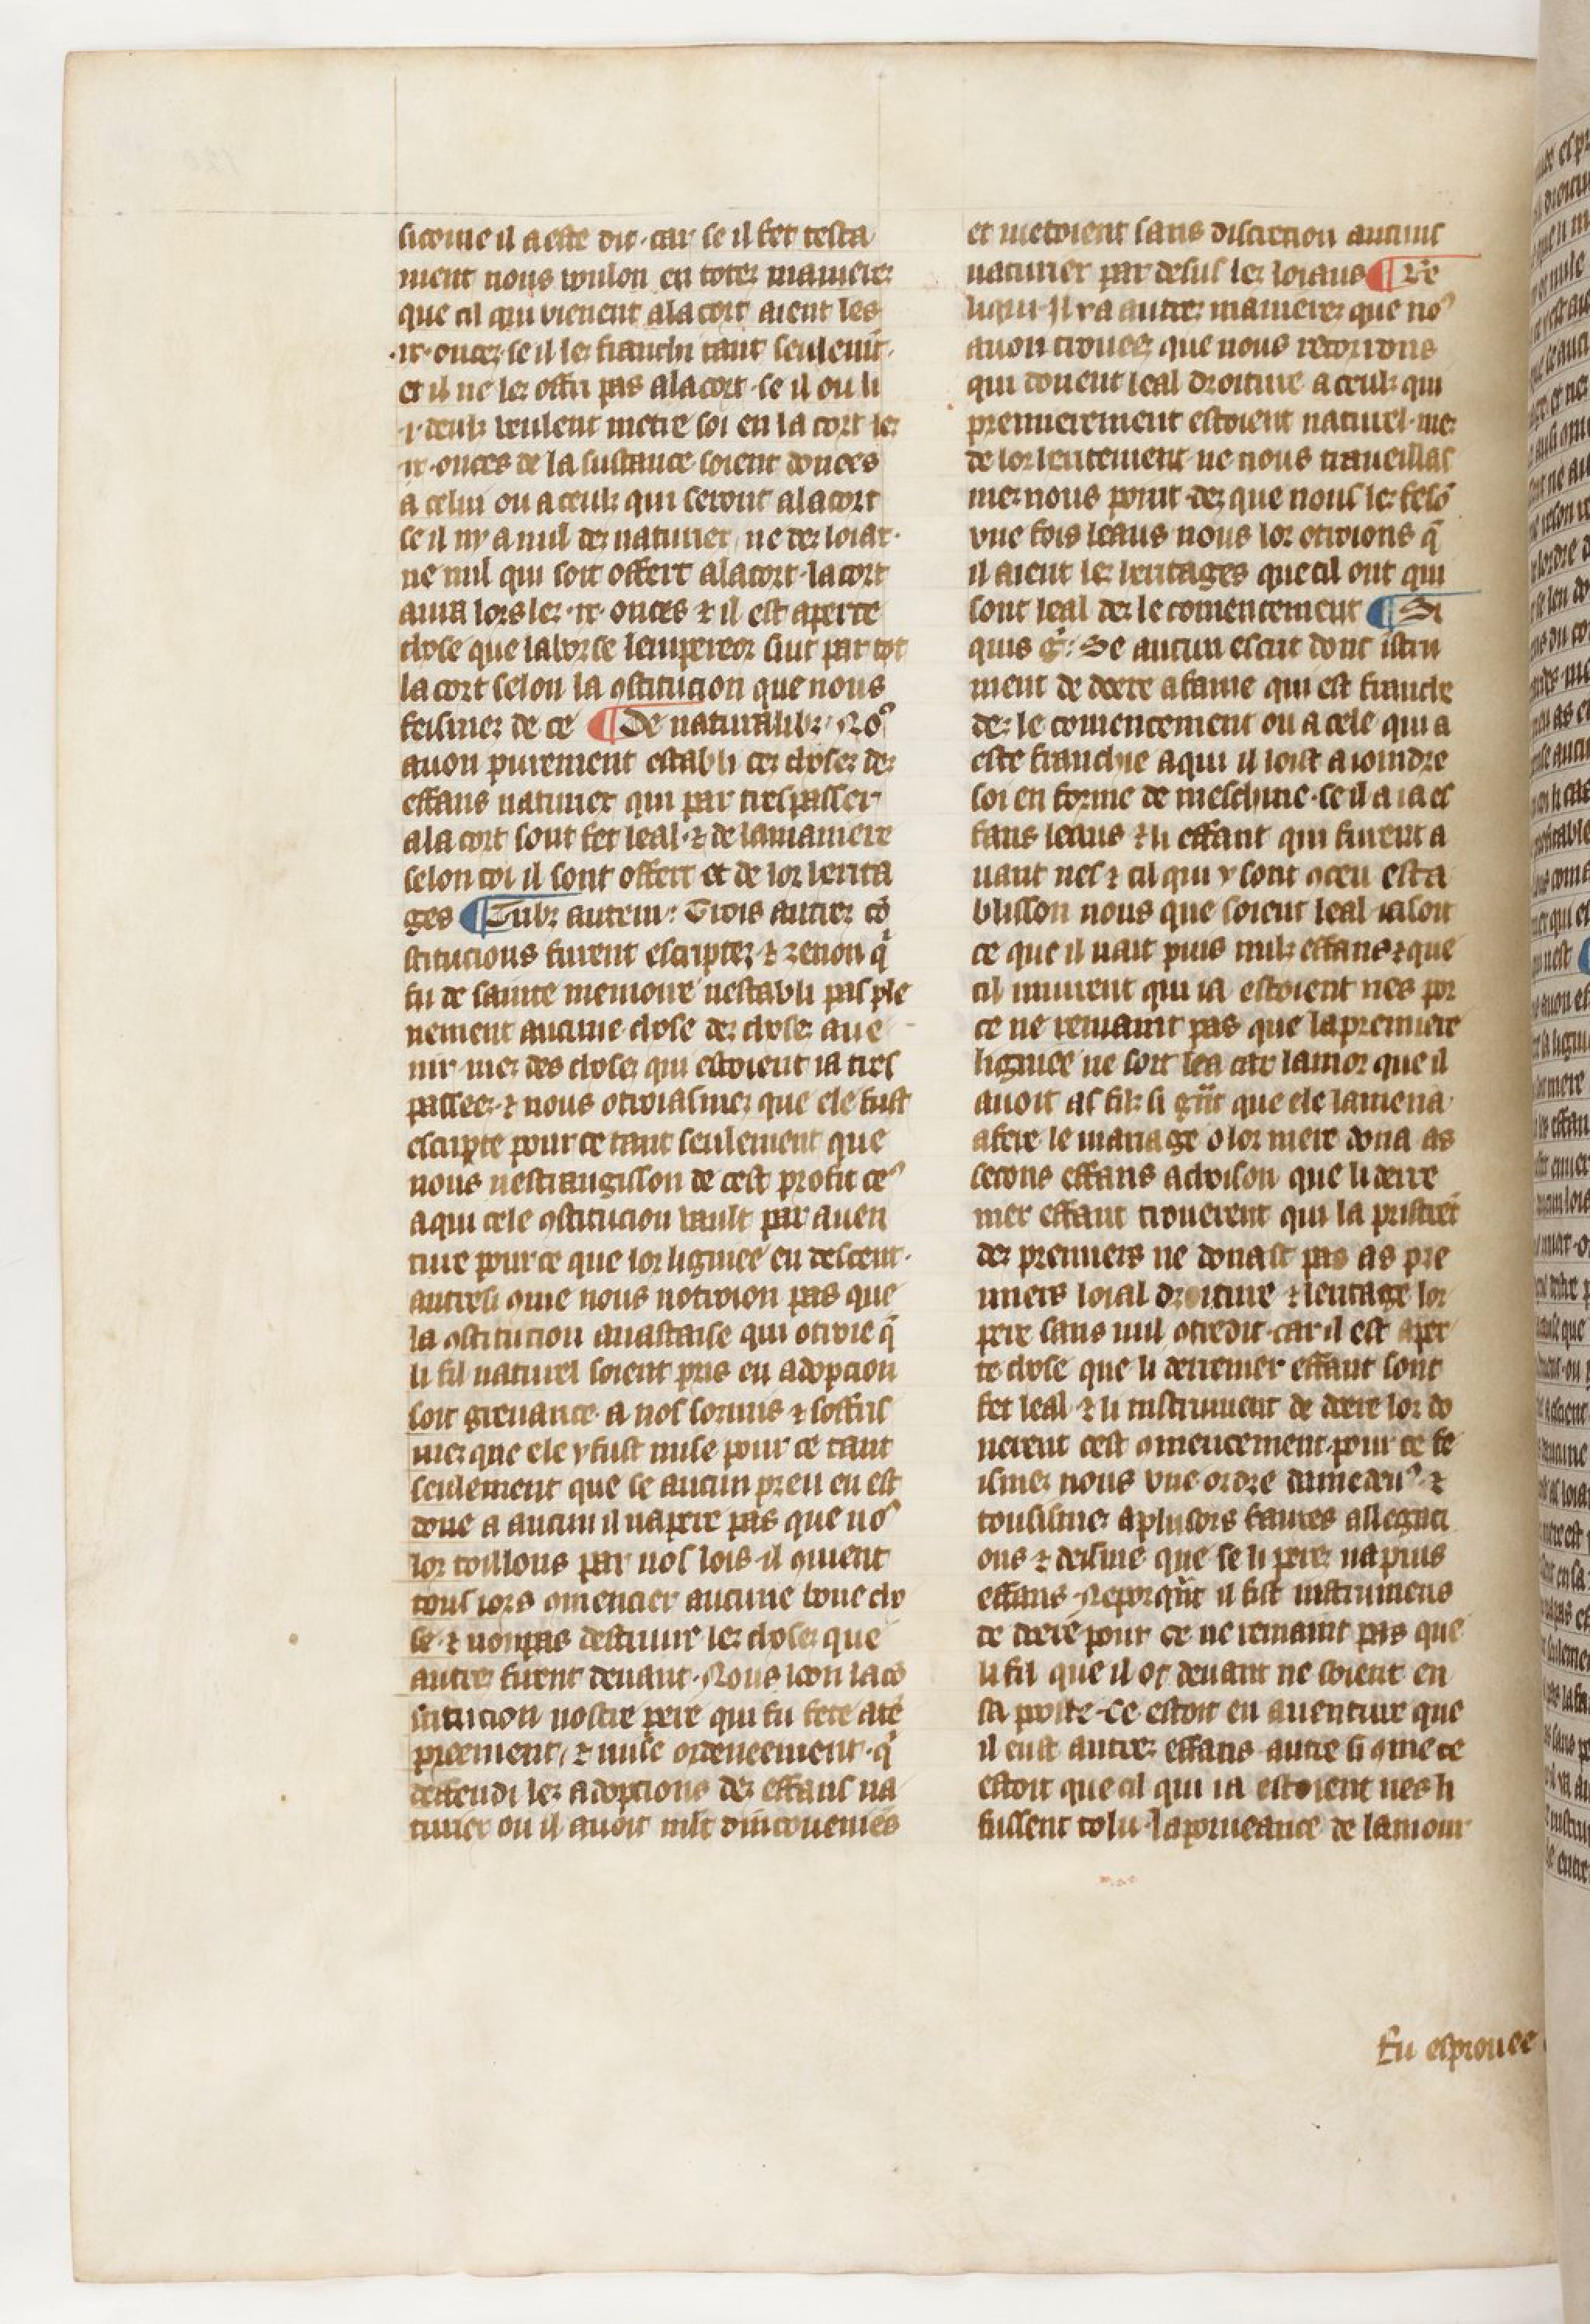 sicome il a este dit · car se il fet testa
ment nous voulon en totes manieres
que cil qui vienent a la cort aient les
·ix· onces · se il les franchi tant seulemt̃ ·
et il ne les offri pas a la cort · se il ou li
·i· deulz veulent metre soi en la cort les
·ix· onces de la sustance soient donees
a celui ou a ceulz qui seront a la cort
se il ny a nul des naturiex ne des loiax ·
ne nul qui soit offert a la cort · la cort
aura lors les ·ix· onces ⁊ il est aperte
chose que la borse lempereor siut par tot
la cort selon la ꝯstitucion que nous
feismes de ce ¶ De naturalibꝫ · Noꝰ
auon purement establi ces choses des
effans naturiex qui par trespasser
a la cort sont fet leal · ⁊ de la maniere
selon coi il sont offert et de lor lerita
ges ¶ Tubꝫ autem : Trois autres cõ
stitucions furent escriptes ⁊ zenon q̃
fu de sainte memoire nestabli pas ple
nement aucune chose des choses aue
nir · mes des choses qui estoient ia tres
passees · ⁊ nous otroiasmes que ele fust
escripte pour ce tant seulement que
nous nestrangisson de cest profit ceꝰ
a qui cele ꝯstitucion vault par auen
ture pour ce que lor lignee en descent ·
autresi ꝯme nous notroion pas que
la ꝯstitucion anastaise qui otroie q̃
li fil naturel soient pris en adopcion
soit greuance a nos sormis ⁊ soffris
mes que ele y fust mise pour ce tant
seulement que se aucun preu en est
done a aucun il napere pas que noꝰ
lor toillons par nos lois · il ꝯuient
tous iors ꝯmencier aucune bone cho
se · ⁊ non pas destruire les choses que
autres firent deuant · Nous loon la cõ
stitucion nostre pere qui fu fete atẽ
preement ⁊ mise ordeneement · q̃
deffendi les adopcions des effans na
turiex ou il auoit mlt dincouenies
et metoient sans discrecion aucuns
naturiex par desus les loiaus ¶ Re
liqui · Il ra autres manieres que noꝰ
auon trouees que nous recorrons
qui donent leal droiture a ceulz qui
premierement estoient naturel · mes
de lor leritement ne nous traueillas
mes nous point · des que nous les fesõ
vne fois leaus nous lor otroions q̃
il aient les leritages que cil ont qui
sont leal des le comencement ¶ Si
quis g̃ : Se aucun escrit dont istru
ment de doere a fame qui est franche
des le comencement ou a cele qui a
este franchie a qui il loist a ioindre
soi en forme de meschine · se il a ia ef
fans leaus ⁊ li effant qui furent a
uant nes ⁊ cil qui y sont ꝯceu esta
blisson nous que soient leal ia soit
ce que il nait puis nulz effans ⁊ que
cil muirent qui ia estoient nes por
ce ne remaint pas que la premiere
lignee ne soit lea car lamor que il
auoit as filz si g̃nt que ele lamena
a fere le mariage o lor mere dona as
secons effans achoison que li derre
nier effant trouerent qui la pristrẽt
des premiers ne donast pas as pre
miers loial droiture ⁊ leritage lor
pere sans nul ꝯtredit · car il est aper
te chose que li derrenier effant sont
fet leal ⁊ li instrument de doere lor do
nerent cest ꝯmencement · pour ce fe
ismes nous vne ordre damedeuꝰ · ⁊
tousismes a plusors fautes allegaci
ons ⁊ deisme que se li peres na puis
effans · Neporq̃nt il fist instrumens
de doere pour ce ne remaint pas que
li fil que il ot deuant ne soient en
sa poste · Ce estoit en auenture que
il eust autres effans autre si ꝯme ce
estoit que cil qui ia estoient nes li
fussent tolu · la porueance de lamour
fu esprouee